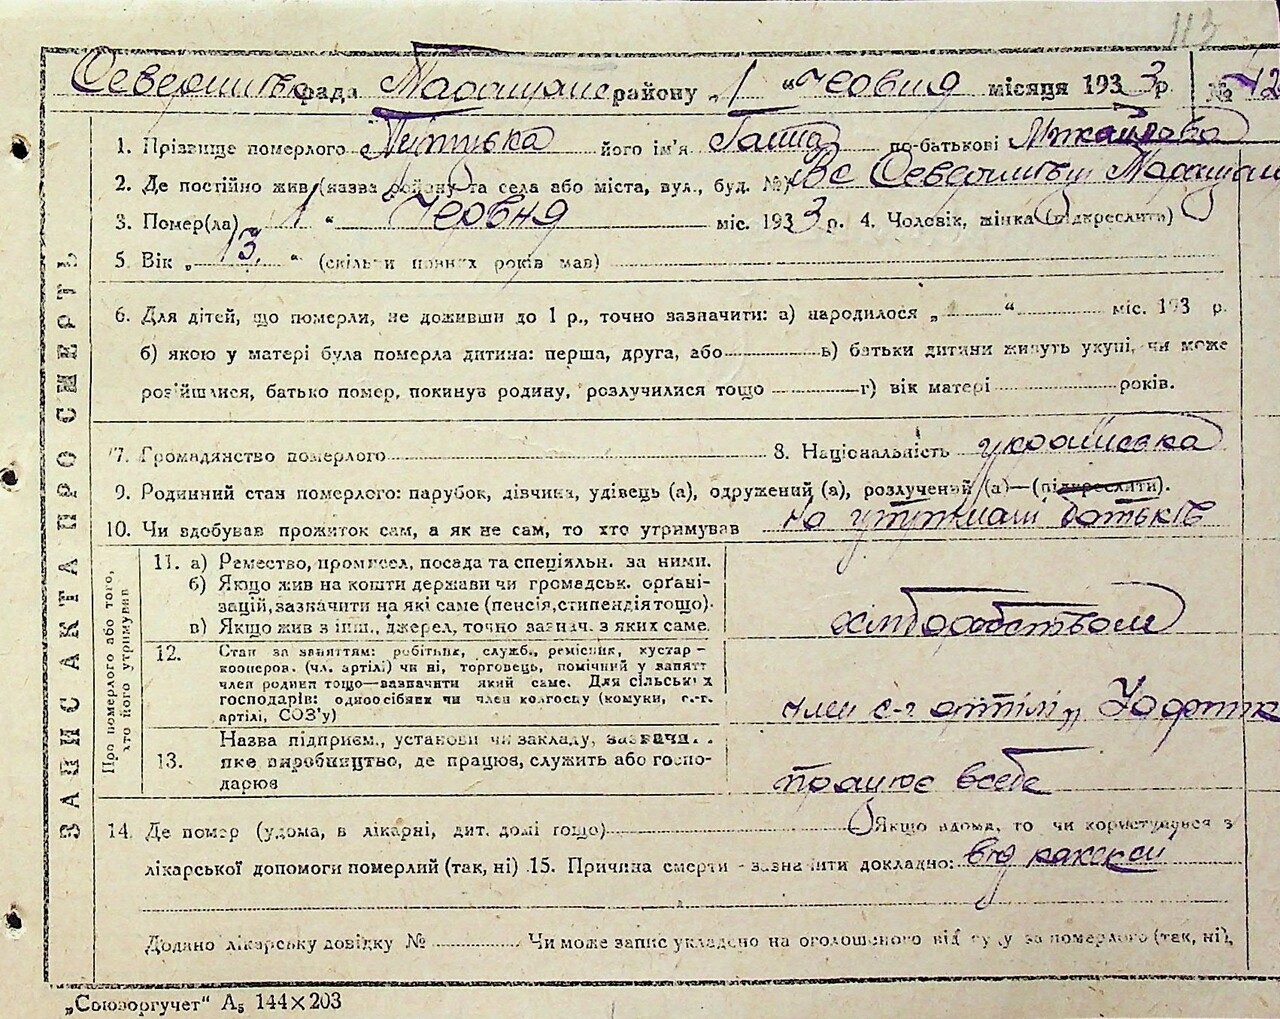 113
рада Таращанс району „1 “ Червня місяця 1933 р. №
1. Прізвище померлого його ім'я Ганна по-батькові Михайлова
2. Де постійно жив (назва району та села або міста, вул., буд. №)
3. Помер(ла) 1 “ Червня міс. 1933 р. 4. Чоловік, жінка (підкреслити)
5. Вік „ 13. “ (скільки повних років мав)
6. Для дітей, що померли, не доживши до 1 р., точно зазначити: а) народилося „ “ міс. 193 р.
б) якою у матері була померла дитина: перша, друга, або в) батьки дитини живуть укупі, чи може
роз'йшлися, батько помер, покинув родину, розлучилися тощо г) вік матері років.
7. Громадянство померлого 8. Національність українська
9. Родинний стан померлого: парубок, дівчина, удівець (а), одружений (а), розлучений (а)—(підкреслити).
10. Чи здобував прожиток сам, а як не сам, то хто утримував на утрімані батьків
ЗАПИС АКТА ПРО СМЕРТЬ
Про померлого або того,
хто його утримував
11. а) Ремество, промисел, посада та спеціяльн. за ними.
б) Якщо жив на кошти держави чи громадськ. орґані-
зацій, зазначити на які саме (пенсія, стипендія тощо).
в) Якщо жив з інш., джерел, точно зазнач. з яких саме.
хліборобством
12. Стан за заняттям: робітник, служб., ремісник, кустар-
кооперов. (чл. артілі) чи ні, торговець, помічний у занятт
член родини тощо—зазначити який саме. Для сільських
господарів: одноосібник чи член колгоспу (комуни, с.-г.
артілі, СОЗ'у)
член с-г артілі
Назва підприєм., установи чи закладу, зазнача. .
13. яке виробництво, де працює, служить або госпо-
дарює
працює в себе
14. Де помер (удома, в лікарні, дит. домі тощо) Якщо вдома, то чи користувався з
лікарської допомоги померлий (так, ні) 15. Причина смерти - зазначити докладно: від
Додано лікарську довідку № Чи може запис укладено на оголошеного від суду за померлого (так, ні),
„Союзоргучет“ А5 144×203